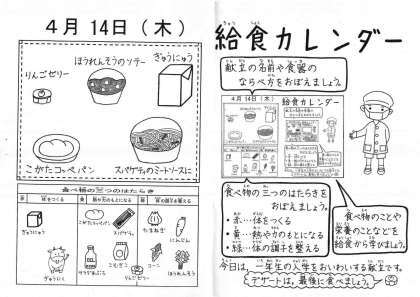 ４月 14日（木）
ほうれんそうのソテー
ぎゅうにゅう
りんごゼリー
こがたコッペパン
スパゲティのミートソースに
食べ物の三つのはたらき
体をつくる
熱や力のもとになる
体の調子を整える
ぎゅうにゅう
こがたコッペパン
スパゲティ
たまねぎ
にんじん
こむぎこ
コーン
給食カレンダー
献立の名前や食器の
ならべ方をおぼえましょう。
４月 14日（木）
給食カレンダー
食べ物の三つのはたらきを
おぼえましょう。
・赤…体をつくる
・黄…熱や力のもとになる
・緑…体の調子を整える
食べ物のことや
栄養のことなどを
給食から学びましょう。
今日は、一年生の入学をおいわいする献立です。
デザートは、最後に食べましょう。